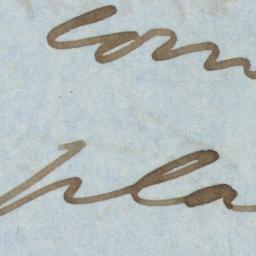 com
pla